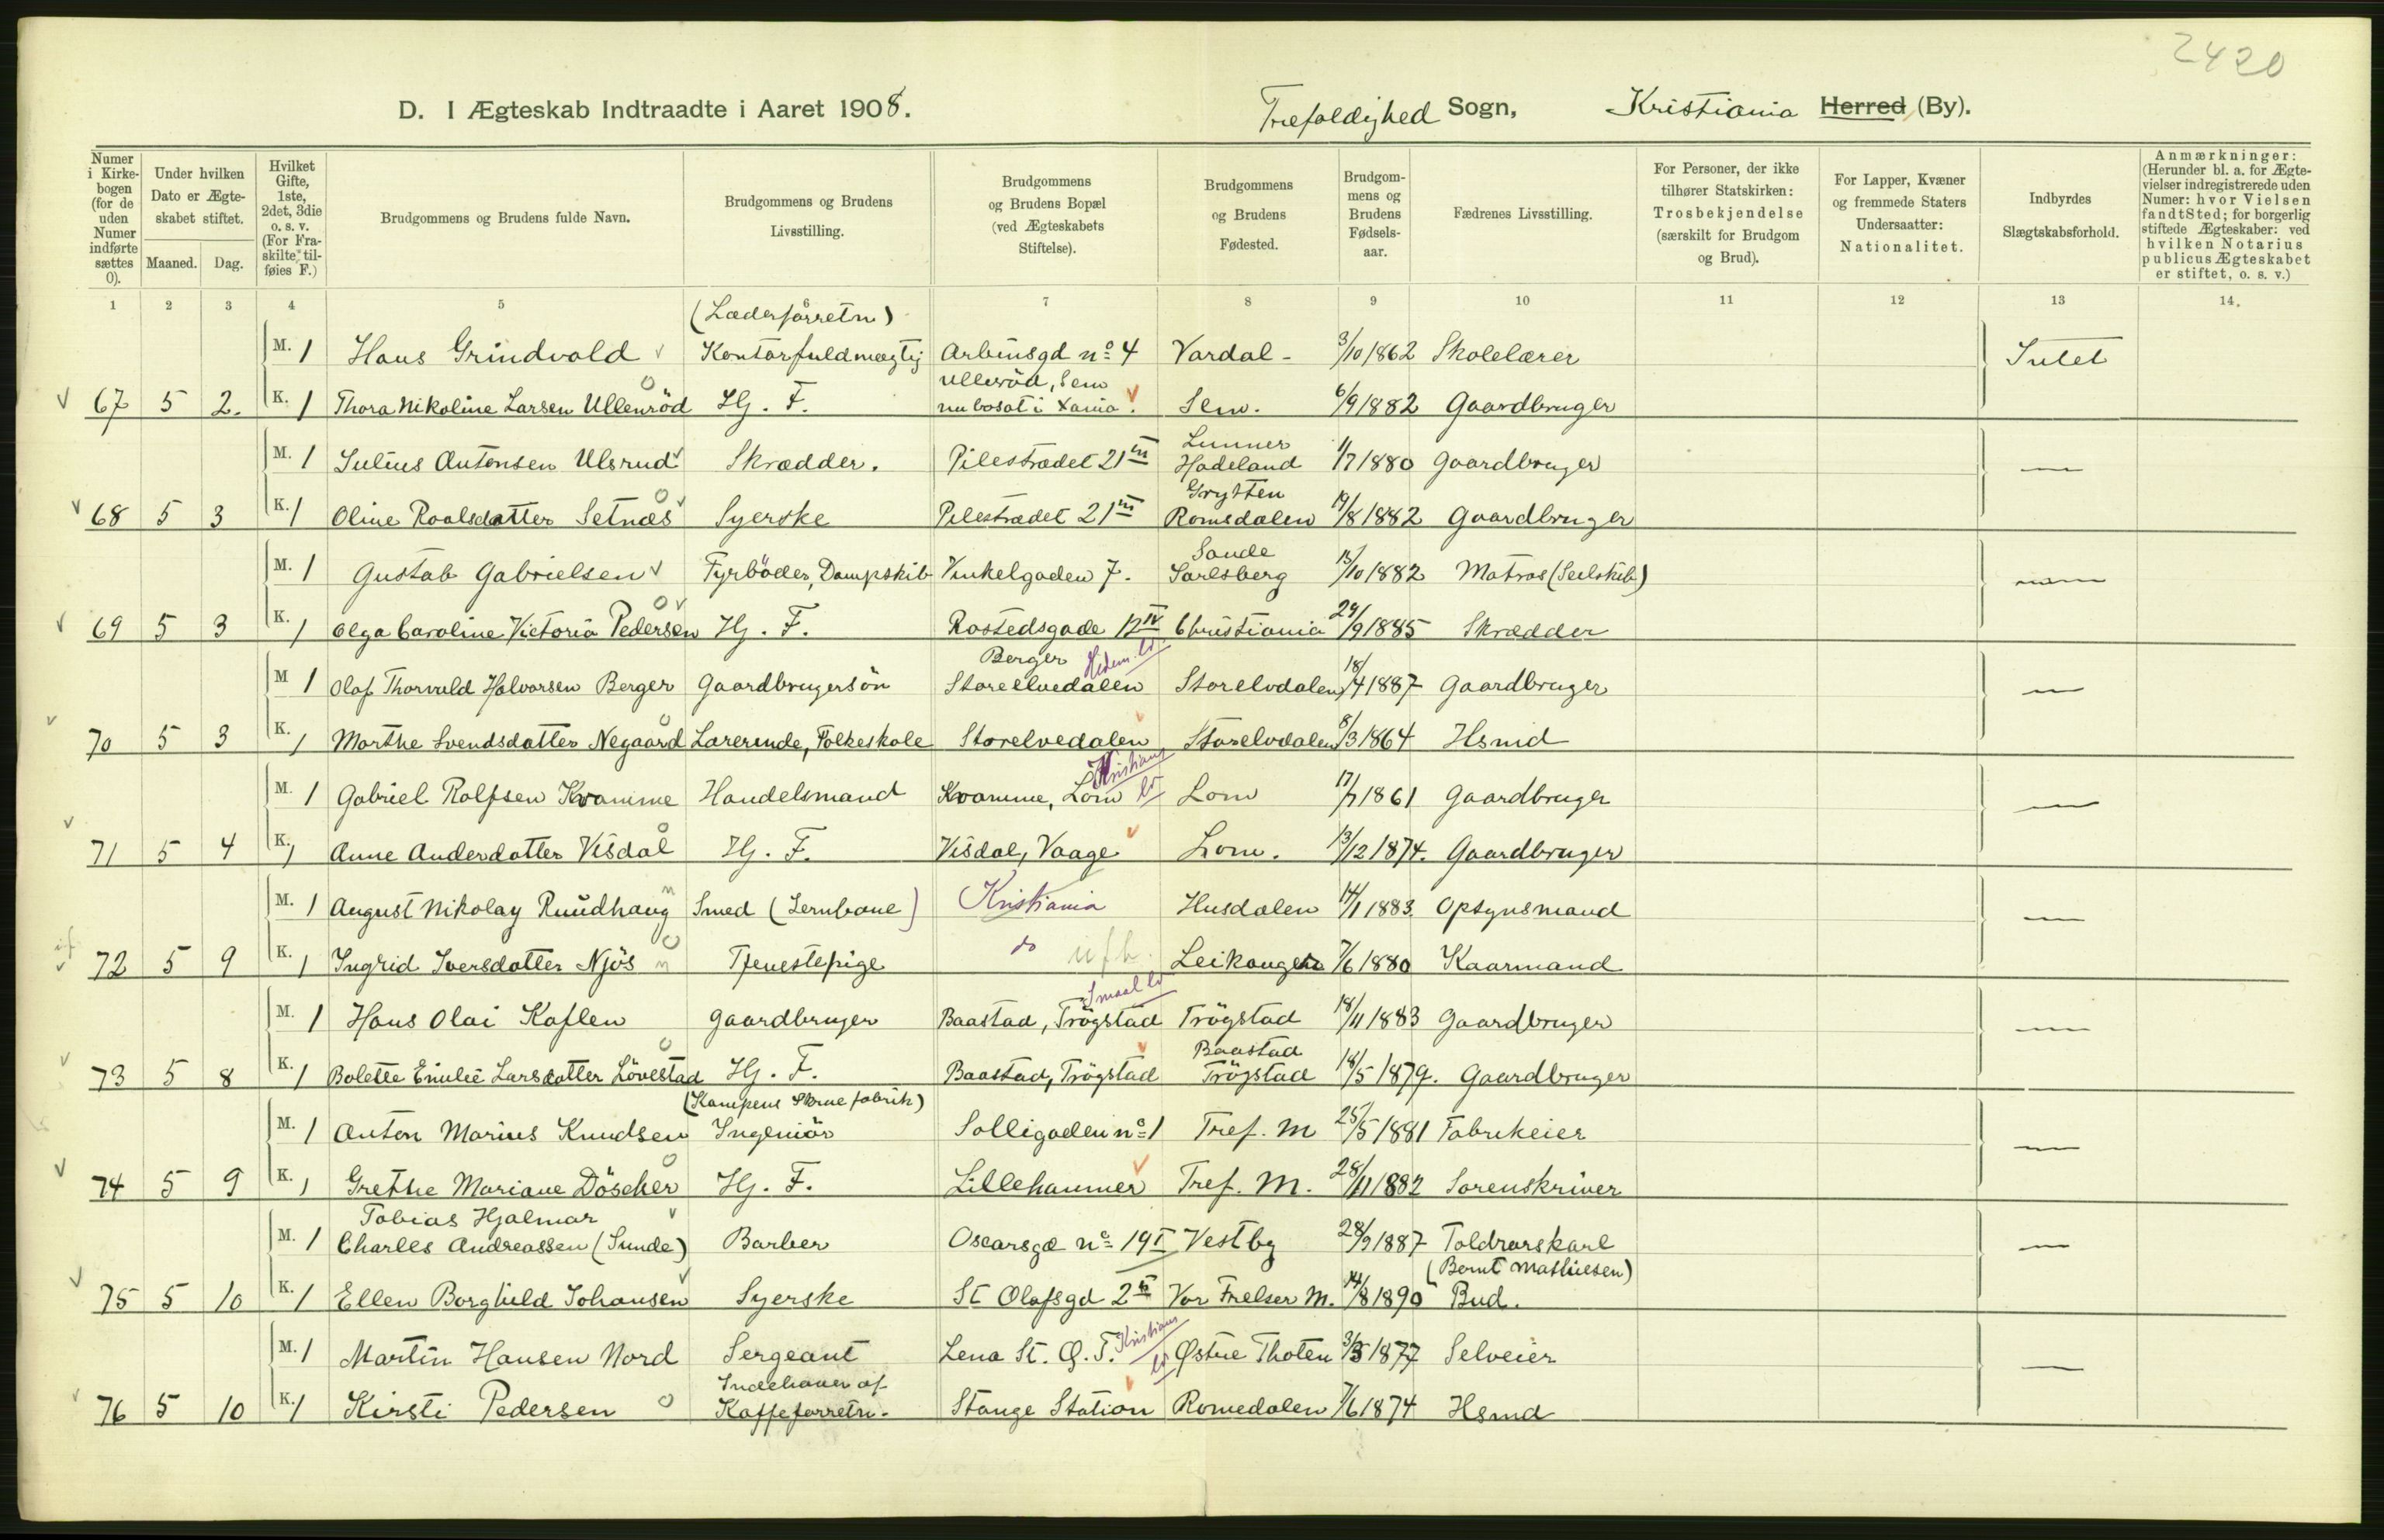 2420
D. I Ægteskab Indtraadte i Aaret 1908. Trefoldighed Sogn, Kristiania Herred (By).
Numer i Kirkebogen (for de uden Numer indførte sættes 0).
Under hvilken Dato er Ægteskabet stiftet.
Maaned. Dag.
Hvilket Gifte, 1ste, 2det, 3die o. s. v. (For Fraskilte tilføies F.)
Brudgommens og Brudens fulde Navn.
Brudgommens og Brudens Livsstilling.
Brudgommens og Brudens Bopæl (ved Ægteskabets Stiftelse).
Brudgommens og Brudens Fødested.
Brudgommens og Brudens Fødselsaar.
Fædrenes Livsstilling.
For Personer, der ikke tilhører Statskirken: Trosbekjendelse (særskilt for Brudgom og Brud).
For Lapper, Kvæner og fremmede Staters Undersaatter: Nationalitet.
Indbyrdes Slægtskabsforhold.
Anmærkninger: (Herunder bl. a. for Ægtevielser indregistrerede uden Numer: hvor Vielsen fandt Sted; for borgerlig stiftede Ægteskaber: ved hvilken Notarius publicus Ægteskabet er stiftet, o. s. v.)
1 2 3 4 5 6 7 8 9 10 11 12 13 14.
(Læderforretn)
M. 1 Hans Grindvold Kontorfuldmægtig Arbinsgd nº 4 Vardal - 3/10 1862 Skolelærer Intet
Ullerød, Sem
67 5 2. K. 1 Thora Nikoline Larsen Ullenröd Hj. F. nu bosat i Xania. Sem. 6/9 1882 Gaardbruger
Lunner
M. 1 Julius Antonsen Ulsrud Skrædder. Pilestrædet 21 III Hadeland 1/7 1880 Gaardbruger —
Grytten
68 5 3 K. 1 Oline Roalsdatter Setnæs Syerske Pilestrædet 21 III Romsdalen 19/8 1882 Gaardbruger
Sande
M. 1 Gustab Gabrielsen Fyrböder, Dampskib Vinkelgaden 7. Jarlsberg 13/10 1882 Matros (Seilskib) —
69 5 3 K. 1 Olga Caroline Victoria Pedersen Hj. F. Rostedsgade 12 IV Christiania 24/9 1885 Skrædder
Berger Hedem.
M 1 Olaf Thorvald Halvorsen Berger Gaardbrugersön Storelvedalen Storelvdalen 18/4 1887 Gaardbruger —
70 5 3 K. 1 Marthe Svendsdatter Negaard Lærerinde, Folkeskole Storelvedalen Storelvdalen 8/3 1864 Hsmd
Kristians
M. 1 Gabriel Rolfsen Kvamme Handelsmand Kvamme, Lom Lom 17/7 1861 Gaardbruger —
71 5 4 K. 1 Anne Andersdatter Visdal Hj. F. Visdal, Vaage Lom. 13/12 1874. Gaardbruger
M. 1 August Nikolay Ruudhaug Smed (Jernbane) Kristiania Husdalen 14/1 1883. Opsynsmand —
72 5 9 K. 1 Ingrid Iversdatter Njös Tjenestepige do Leikanger 7/6 1880 Kaarmand
Smaal
M. 1 Hans Olai Kaflen Gaardbruger Baastad, Trögstad Trögstad 18/11 1883 Gaardbruger —
Baastad
73 5 8 K. 1 Bolette Emilie Larsdatter Lövestad Hj. F. Baastad, Trögstad Trögstad 14/5 1879. Gaardbruger
(Kampens Skruefabrik)
M. 1 Anton Marius Knudsen Ingeniör Solligaden nº 1 Tref. M 25/5 1881 Fabrikeier —
74 5 9 K. 1 Grethe Mariane Döscher Hj. F. Lillehammer Tref. M. 28/11 1882 Sorenskriver
Tobias Hjalmar
M. 1 Charles Andreassen (Sunde) Barber Oscarsgd nº 19 I Vestby 28/9 1887 Toldrorskarl —
(Bernt Mathiesen)
75 5 10 K. 1 Ellen Borghild Johansen Syerske St Olafsgd 2 II Vor Frelser M. 14/8 1890 Bud.
Kristians
M. 1 Martin Hansen Nord Sergeant Lena St. Ø. T. Østre Thoten 3/5 1877 Selveier —
Indehaver af
76 5 10 K. 1 Kirsti Pedersen Kaffeforretn. Stange Station Romedalen 7/6 1874 Hsmd